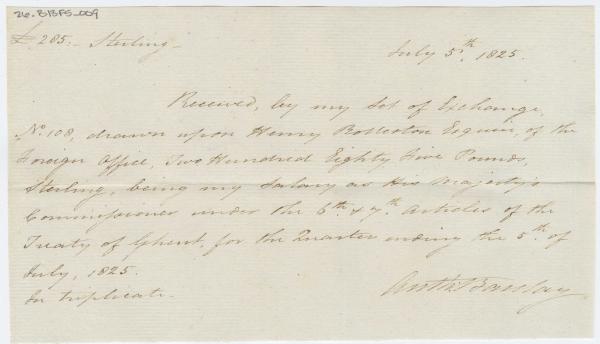 26-BBFS-009
£285.- Sterling-
July 5th, 1825.
Received, by my Set of Exchange,
No. 108, drawn upon Henry Rolleston Esquire, of the
Foreign Office, Two Hundred Eighty Five Pounds,
Sterling, being my Salary as His Majesty's
Commissioner under the 6th & 7th Articles of the
Treaty of Ghent, for the Quarter ending the 5th of
July, 1825.
In triplicate-
Anth: Barclay